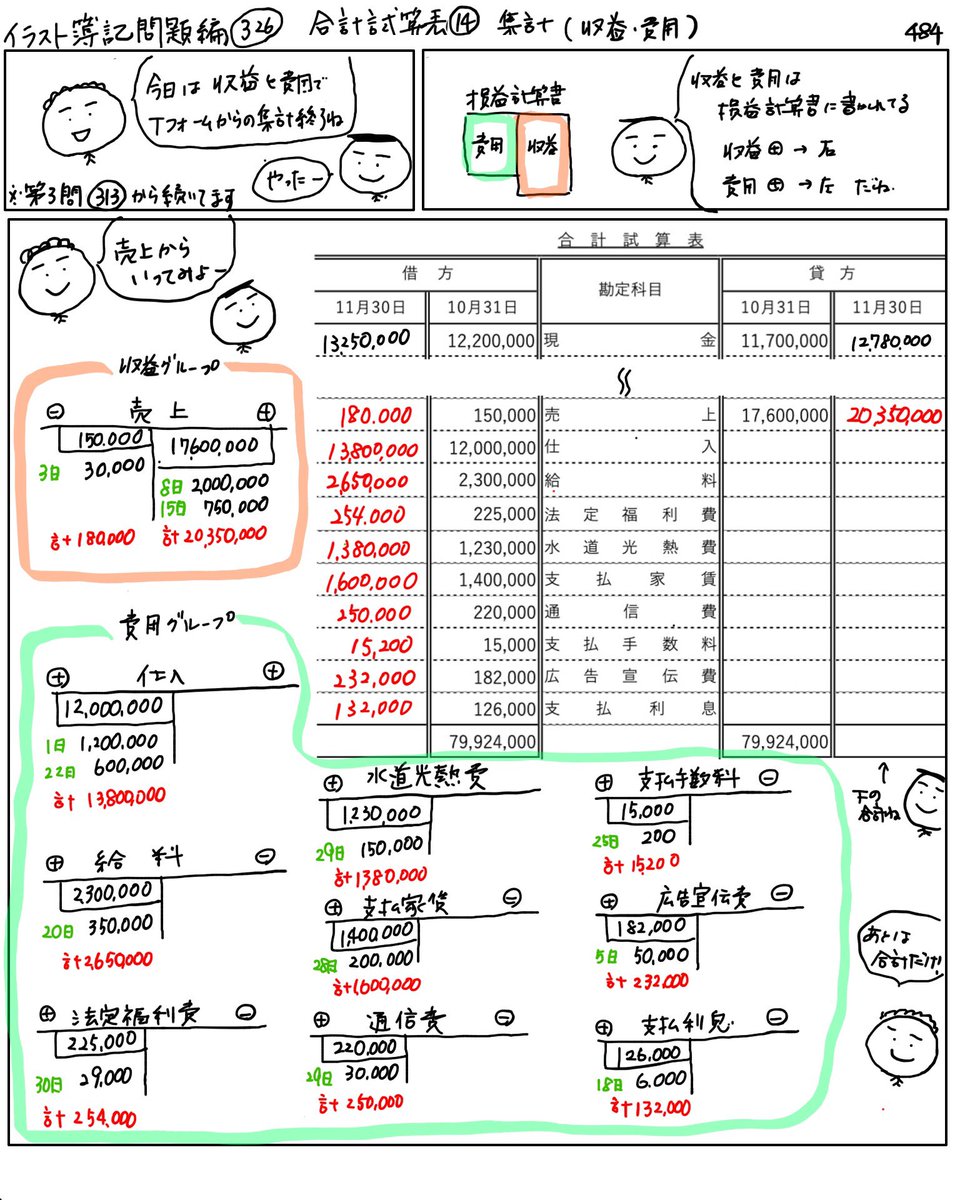 イラスト簿記問題編 326 合計試算表⑭ 集計(収益・費用) 484
今日は収益と費用で
Tフォームからの集計終了ね
やったー
※第3問 313 から続いてます
損益計算書
費用 収益
収益と費用は
損益計算書に書かれてる
収益⊕→右
費用⊕→左 だね
売上から
いってみよー
合計試算表
借方 勘定科目 貸方
11月30日 10月31日 10月31日 11月30日
13,250,000 12,200,000 現金 11,700,000 12,780,000
180.000 150,000 売上 17,600,000 20,350,000
13,800,000 12,000,000 仕入
2,650,000 2,300,000 給料
254.000 225,000 法定福利費
1,380,000 1,230,000 水道光熱費
1,600,000 1,400,000 支払家賃
250.000 220,000 通信費
15,200 15,000 支払手数料
232,000 182,000 広告宣伝費
132,000 126,000 支払利息
79,924,000 79,924,000
収益グループ
⊖ 売上 ⊕
150.000 17,600,000
3日 30,000
8日 2,000,000
15日 750,000
計180,000 計20,350,000
費用グループ
⊕ 仕入 ⊕
12,000,000
1日 1,200,000
22日 600,000
計13,800,000
⊕ 給料 ⊖
2300,000
20日 350,000
計2,650,000
⊕ 法定福利費 ⊖
225,000
30日 29,000
計254,000
⊕ 水道光熱費
1,230,000
29日 150,000
計1,380,000
⊕ 支払家賃 ⊖
1,400,000
28日 200,000
計1,600,000
⊕ 通信費 ⊖
220,000
29日 30,000
計250,000
⊕ 支払手数料 ⊖
15,000
25日 200
計15,200
⊕ 広告宣伝費 ⊖
182,000
5日 50,000
計232,000
⊕ 支払利息 ⊖
126,000
18日 6.000
計132,000
↑
下の
合計ね
あとは
合計だけ!